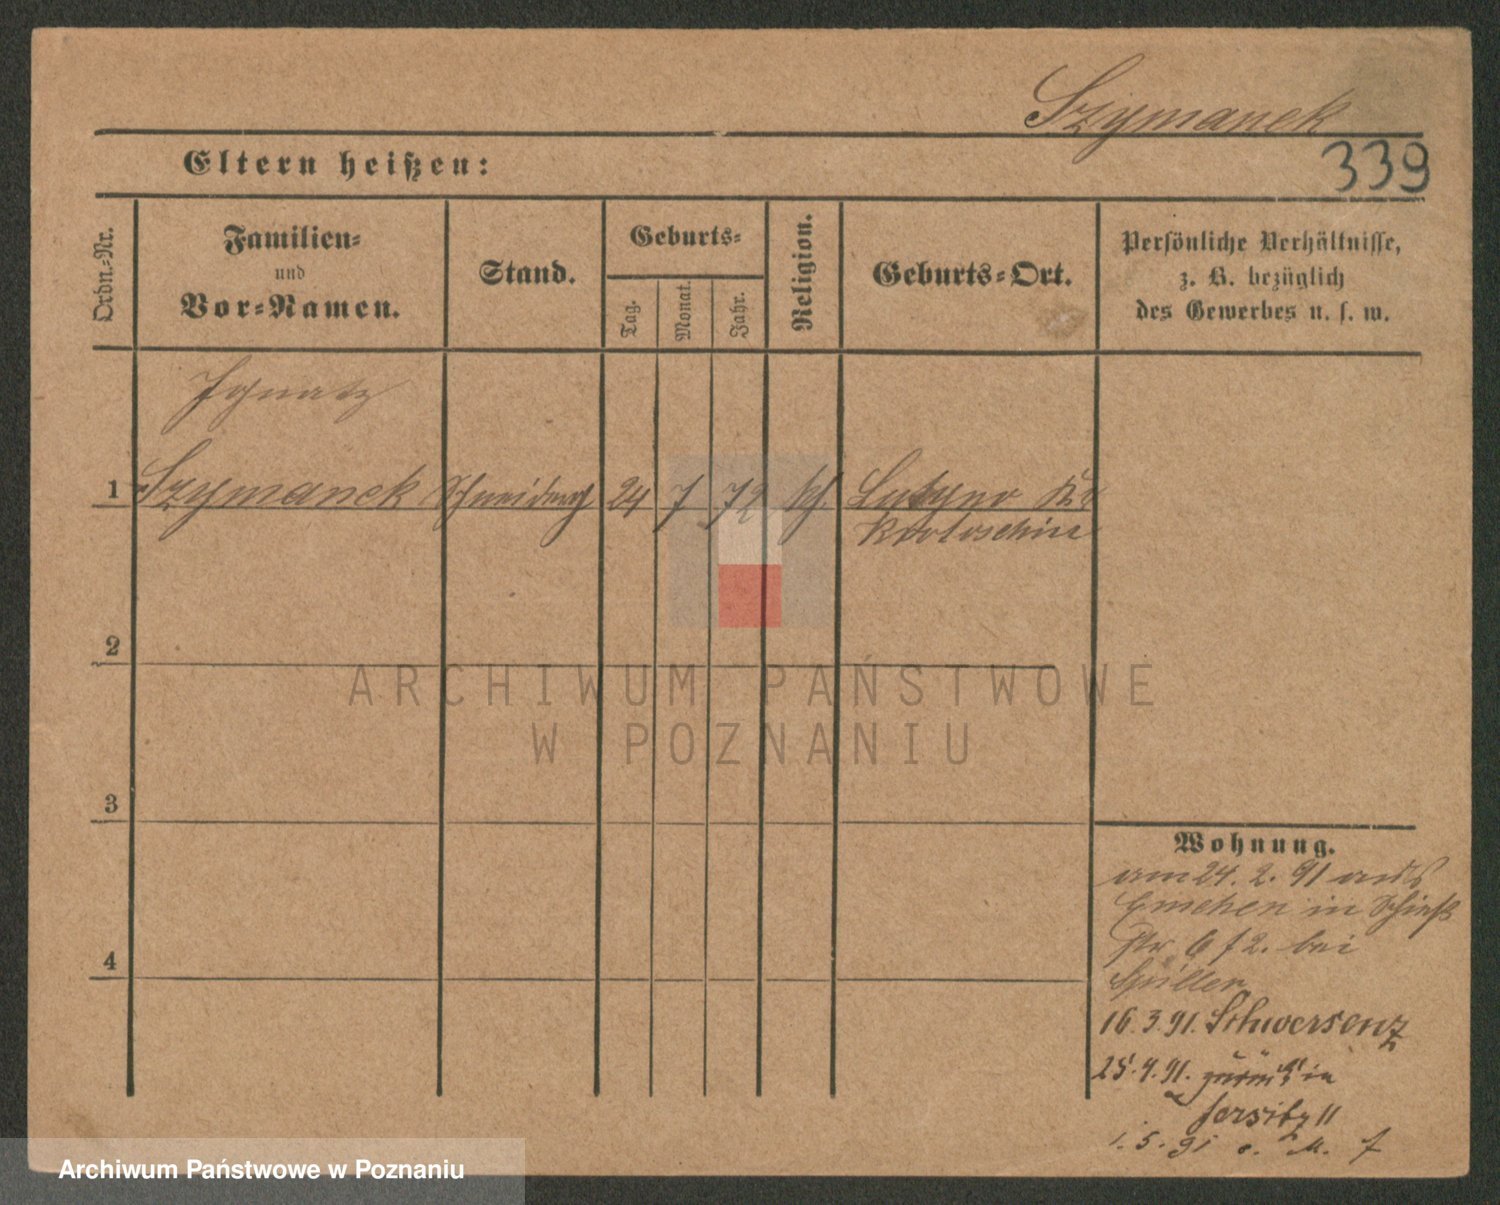 Szymanek
339
Eltern heißen:
Ordn.-Nr.
Familien-
und
Vor-Namen.
Stand.
Geburts-
Tag.
Monat.
Jahr.
Religion.
Geburts-Ort.
Persönliche Verhältnisse,
z. B. bezüglich
des Gewerbes u. s. w.
Ignatz
1 Szymanek 24 7 72 kth. Lutyno
Krotoschin
2
3
4
ARCHIWUM PAŃSTWOWE
W POZNANIU
Wohnung.
am 24. 2. 91 aus
in Schieß
str 6 bei
Spiller
16.3.91. Schwersenz
25.4.91. zurück in
Jersitz 11
1. 5. 91
Archiwum Państwowe w Poznaniu